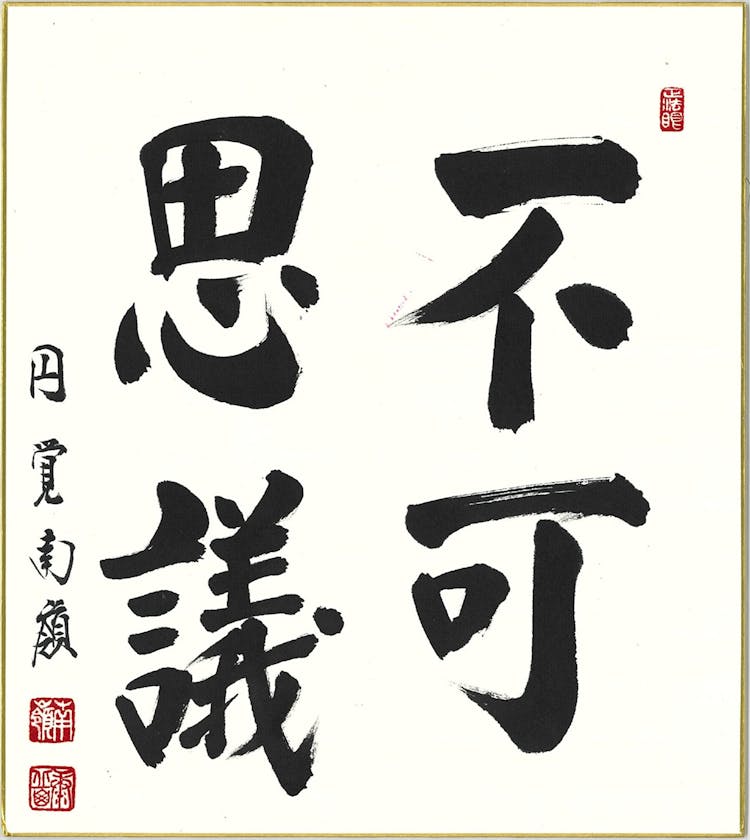 不可
思議
円覚南嶺